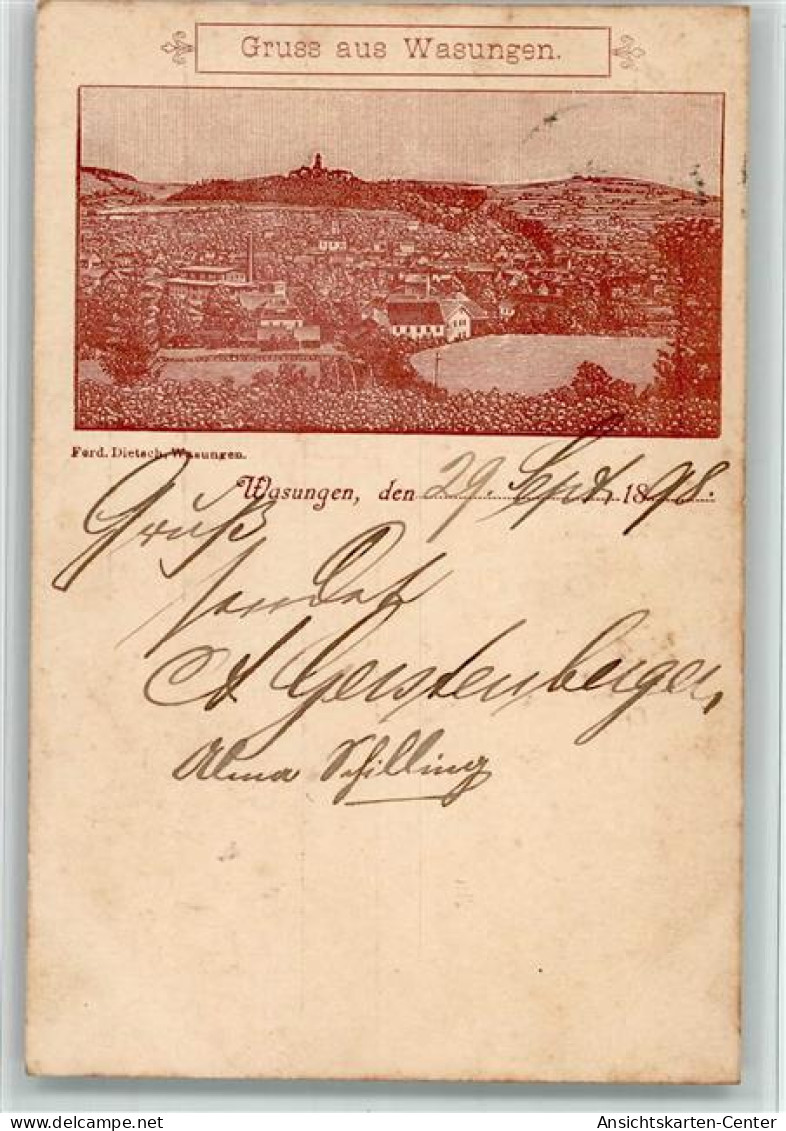 Gruss aus Wasungen.
Ferd. Dietsch, Wasungen.
Wasungen, den 29. Sept. 1898.
Gruß
sendet
A Gerstenberger,
Alma Schilling
Ansichtskarten-Center